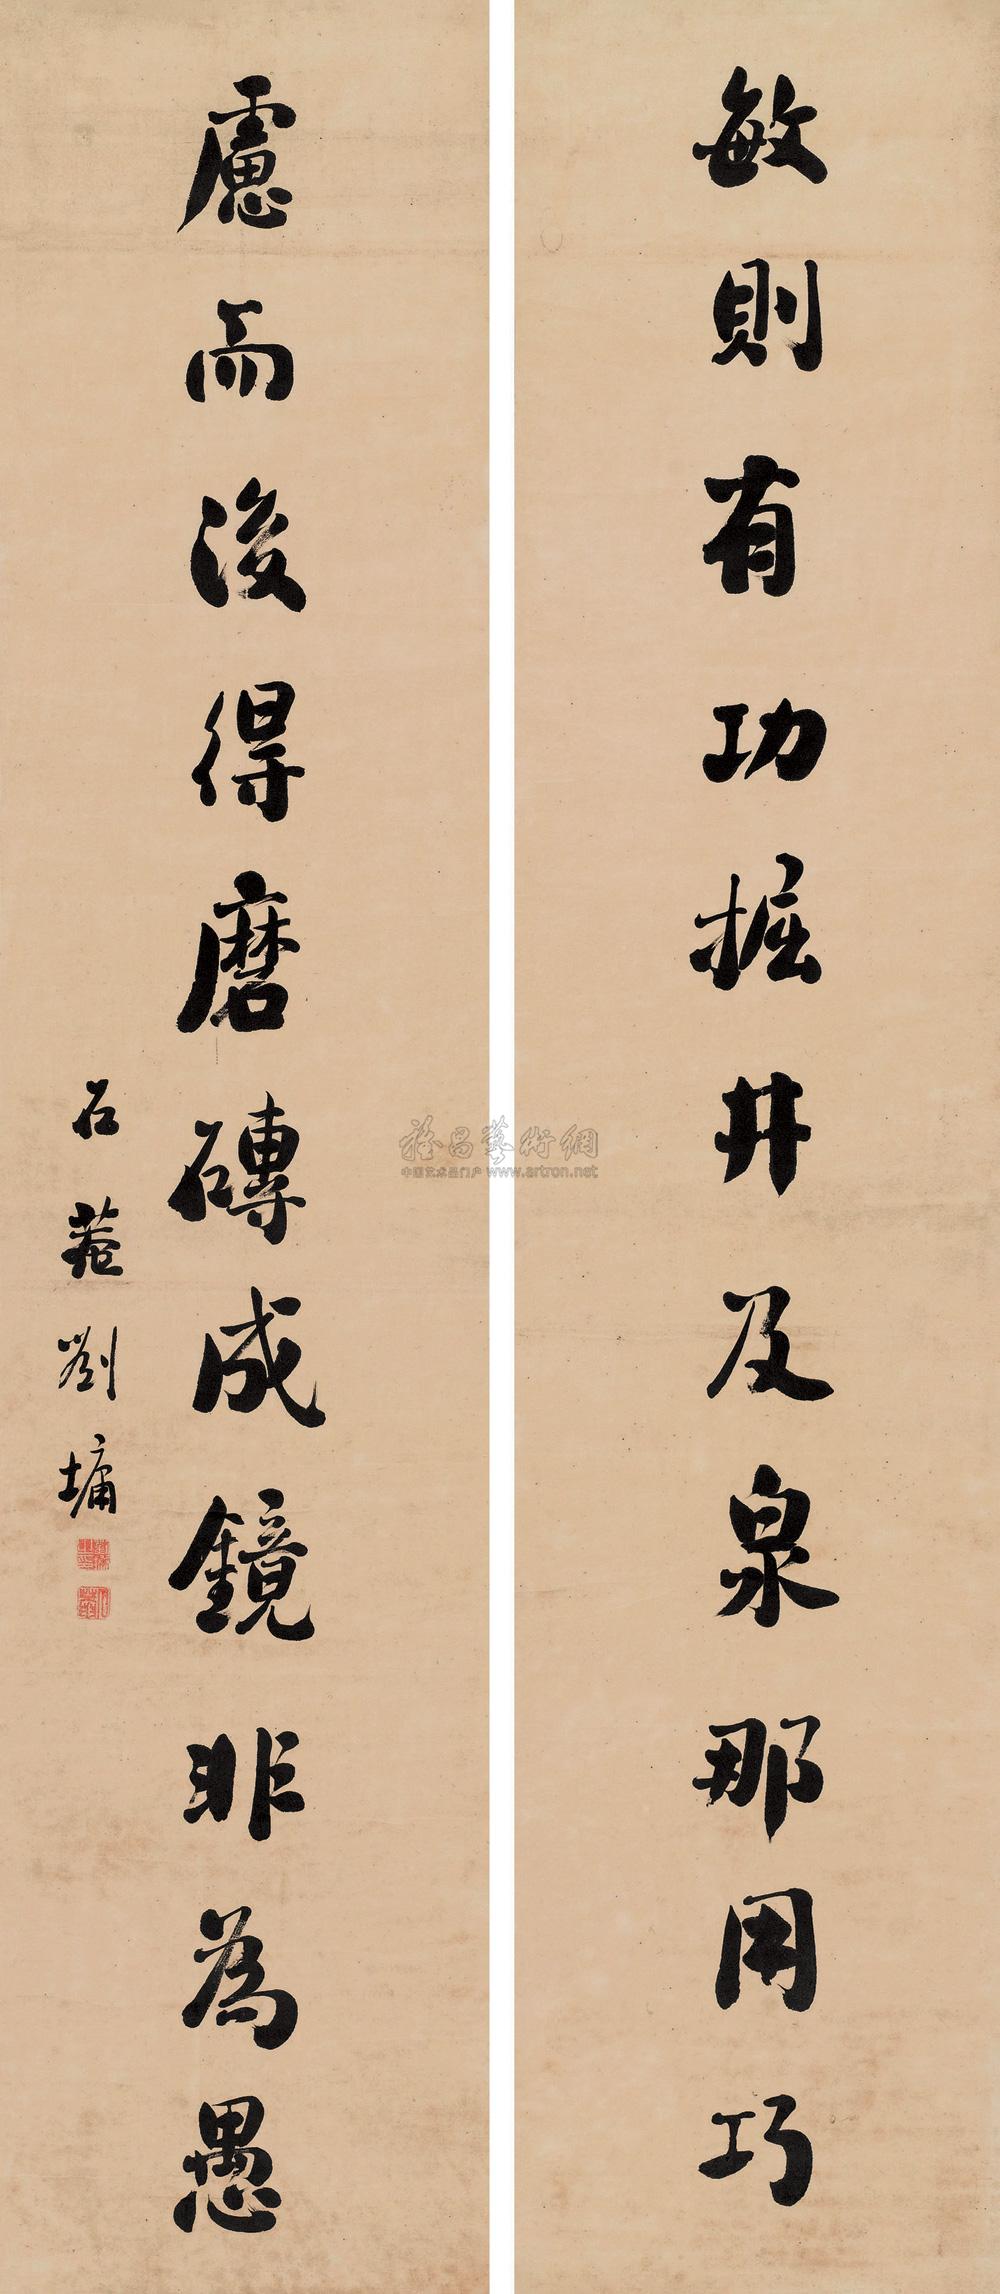 敏則有功掘井及泉那用巧
慮而後得磨磚成鏡非為愚
石菴劉墉
雅昌藝術網
中国艺术品门户 www.artron.net